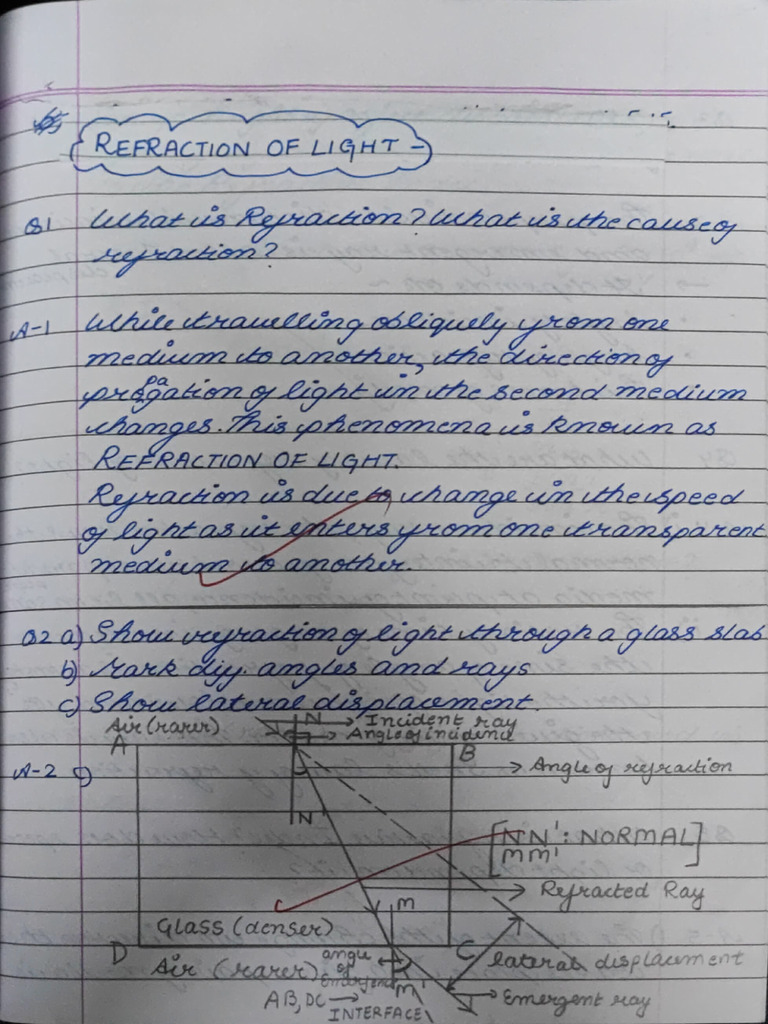 REFRACTION OF LIGHT -
Q1 What is Refraction? What is the cause of
refraction?
A-1 While travelling obliquely from one
medium to another, the direction of
propagation of light in the second medium
changes. This phenomena is known as
REFRACTION OF LIGHT.
Refraction is due to change in the speed
of light as it enters from one transparent
medium to another.
Q2 a) Show refraction of light through a glass slab
b) Mark diff. angles and rays
c) Show lateral displacement.
Air (rarer) N → Incident ray
A → Angle of incidence
B
A-2 → Angle of refraction
N'
[NN' : NORMAL]
MM'
→ Refracted Ray
M
Glass (denser)
D Air (rarer) angle C lateral displacement
of
Emergence M' → Emergent ray
AB, DC →
INTERFACE